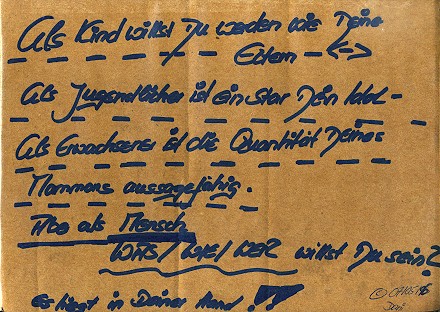 Als Kind willst Du werden wie Deine
Eltern – <->
Als Jugendlicher ist ein Star Dein Idol –
Als Erwachserei ist die Quantität Deines
Mammons aussagefähig.
Also als Mensch
WAS/WIE/WER willst Du sein?
Es liegt in Deiner Hand!!
©